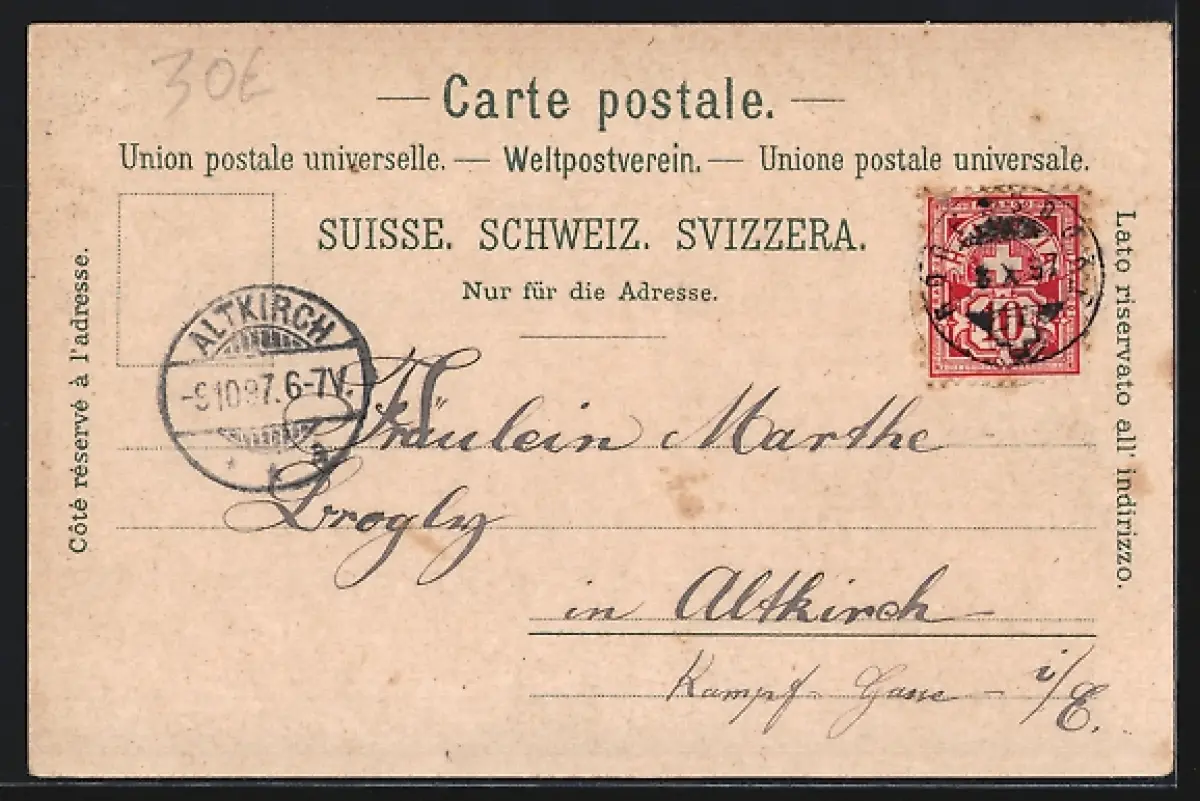 30€
— Carte postale. —
Union postale universelle. — Weltpostverein. — Unione postale universale.
SUISSE. SCHWEIZ. SVIZZERA.
Nur für die Adresse.
Côté réservé à l'adresse.
Lato riservato all' indirizzo.
FRANCO
10
X 97
ALTKIRCH
-9.10.97. 6-7V.
a
Fräulein Marthe
Brogly
in Altkirch
i/E.